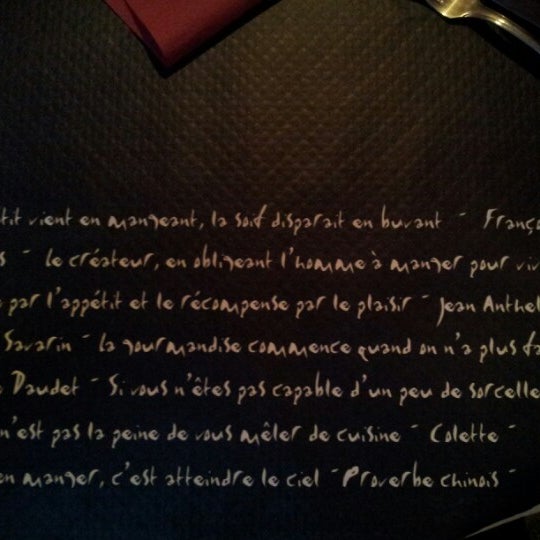 tit vient en mangeant, la soif disparait en buvant - Franço
s - le créateur, en obligeant l'homme à manger pour viv
par l'appétit et le récompense par le plaisir - Jean Anthel
Savarin - la gourmandise commence quand on n'a plus fa
Daudet - Si vous n'êtes pas capable d'un peu de sorcelle
n'est pas la peine de vous mêler de cuisine - Colette -
en manger, c'est atteindre le ciel - Proverbe chinois -